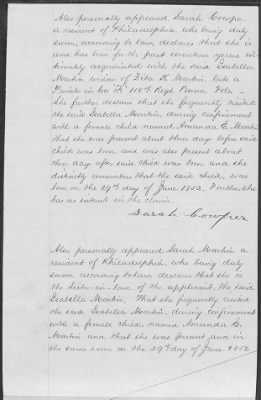 Also personally appeared Sarah Cowper,
a resident of Philadelphia, who being duly
sworn, according to law, declares that she is
and has been for the past seventeen years in-
timately acquainted with the said Isabella
Martin widow of Ziba H. Martin, late a
Private in Co. "F" 118th Regt Penna Vols—
She further declares that she frequently visited
the said Isabella Martin, during confinement
with a female child named Amanda E. Martin
that she was present about three days before said
child was born, and was also present about
three days after said child was born and she
distinctly remembers that the said child, was
born on the 29th day of June 1852. Further she
has no interest in the claim.
Sarah Cowper
Also personally appeared Sarah Martin, a
resident of Philadelphia, who being duly
sworn according to law declares that she is
the Sister-in-law of the applicant, the said
Isabella Martin. That she frequently visited
the said Isabella Martin, during confinement
with a female child, named Amanda E.
Martin and that she was present and in
the same room on the 29th day of June 1852